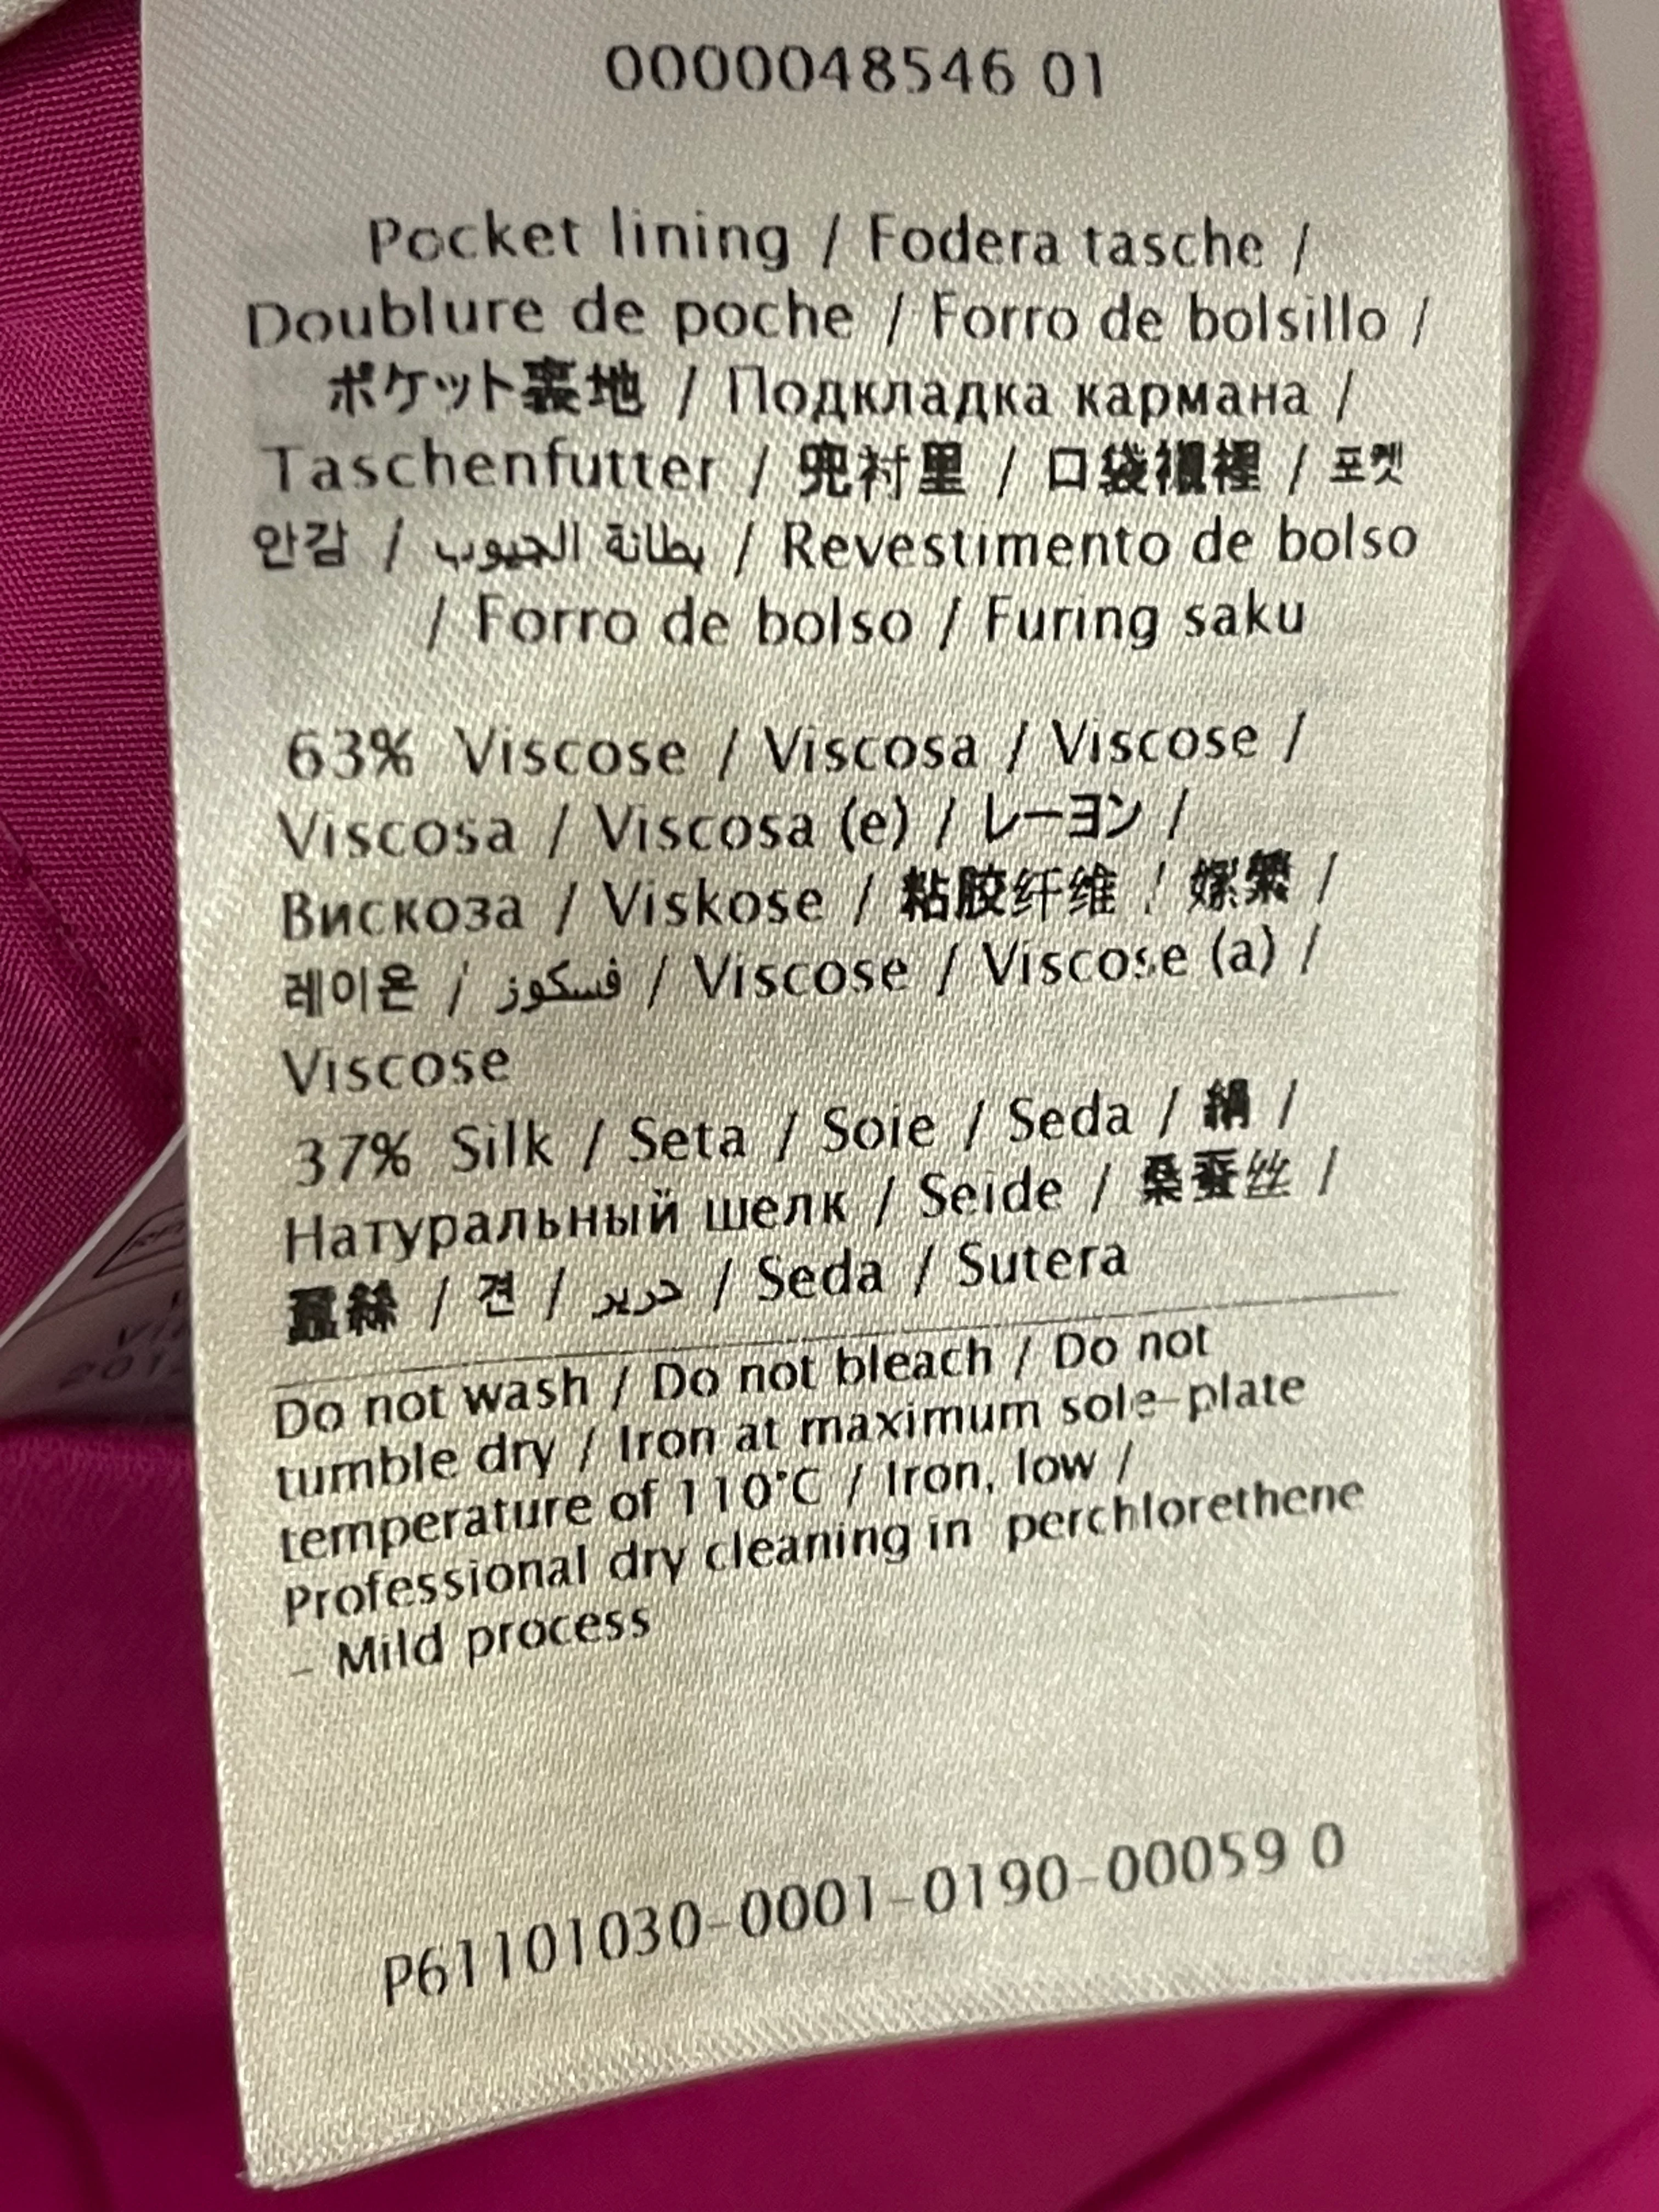 0000048546 01
Pocket lining / Fodera tasche /
Doublure de poche / Forro de bolsillo /
ポケット裏地 / Подкладка кармана /
Taschenfutter / 兜衬里 / 口袋襯裡 / 포켓
안감 / بطانة الجيوب / Revestimento de bolso
/ Forro de bolso / Furing saku
63% Viscose / Viscosa / Viscose /
Viscosa / Viscosa (e) / レーヨン /
Вискоза / Viskose / 粘胶纤维 / 嫘縈 /
레이온 / فسكوز / Viscose / Viscose (a) /
Viscose
37% Silk / Seta / Soie / Seda / 絹 /
Натуральный шелк / Seide / 桑蚕丝 /
蠶絲 / 견 / حرير / Seda / Sutera
Do not wash / Do not bleach / Do not
tumble dry / Iron at maximum sole-plate
temperature of 110°C / Iron, low /
Professional dry cleaning in perchlorethene
- Mild process
P61101030-0001-0190-00059 0